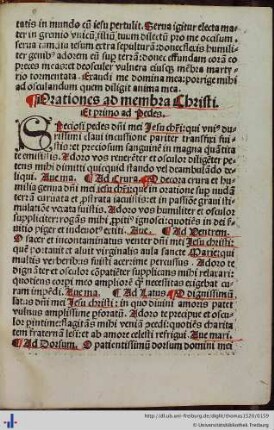 tatis in mundo cū iesu pertulit. Serua igitur electa ma
ter in gremio vnicū filiū tuum dilectū pro me occisum.
serua
tenus extra sepulturā: donec flexis humili
ter genib⁹ adorem eū sup terrā: donec effundam corā eo
preces meas et deosculer vulnera eiusq; mēbra marty
rio tormentata. Exaudi me domina mea: porrige mihi
ad osculandum quem diligit anima mea.
Orationes ad membra Christi.
Et primo ad Pedes.
Speciosi pedes dn̄i mei Jesu chr̄i: qui vni⁹ du
rissimi claui incussione pariter transfixi fui
stis: et preciosum sanguinē in magna quātita
te emisistis. Adoro vos reuerēter et osculor diligēter pe
tens mihi dimitti quicquid stando vel deambulādo re
liqui. Aue ma. Ad Crura. O decora crura et hu
milia genua dn̄i mei iesu chr̄i: que in oratione sup nudā
terrā curuata et prostrata iacuistis: et in passiōe graui sti
mulatiōe vexata fuistis. Adoro vos humiliter et osculor
suppliciter rogās mihi
ignosci: quotiēs in dei ser
uitio piger et indeuot⁹ extiti. Aue. Ad Ventrem.
O sacer et incontaminatus venter dn̄i mei Jesu christi:
que portauit et aluit virginalis alu⁹ sancte Marie: qui
multis verberibus fuisti acerrime percussus. Adoro te
dignāter et osculor cōpatiēter supplicans mihi relaxari:
quotiens corpi meo ampliorē
necessitas exigebat cu
ram impēdi. Aue ma. Ad Latus. O dignissimū
lat⁹ dn̄i mei Jesu christi: in quo diuini amoris patet
vulnus amplissime pforatū. Adoro te precipue et oscu
lor
mihi veniā
quotiēs charita
tem fraternā lesi: et ab amore celesti refrigui. Aue mari.
Ad Dorsum. O patientissimū dorsum domini mei
http://dl.ub.uni-freiburg.de/diglit/thomas1520/0159
© Universitätsbibliothek Freiburg